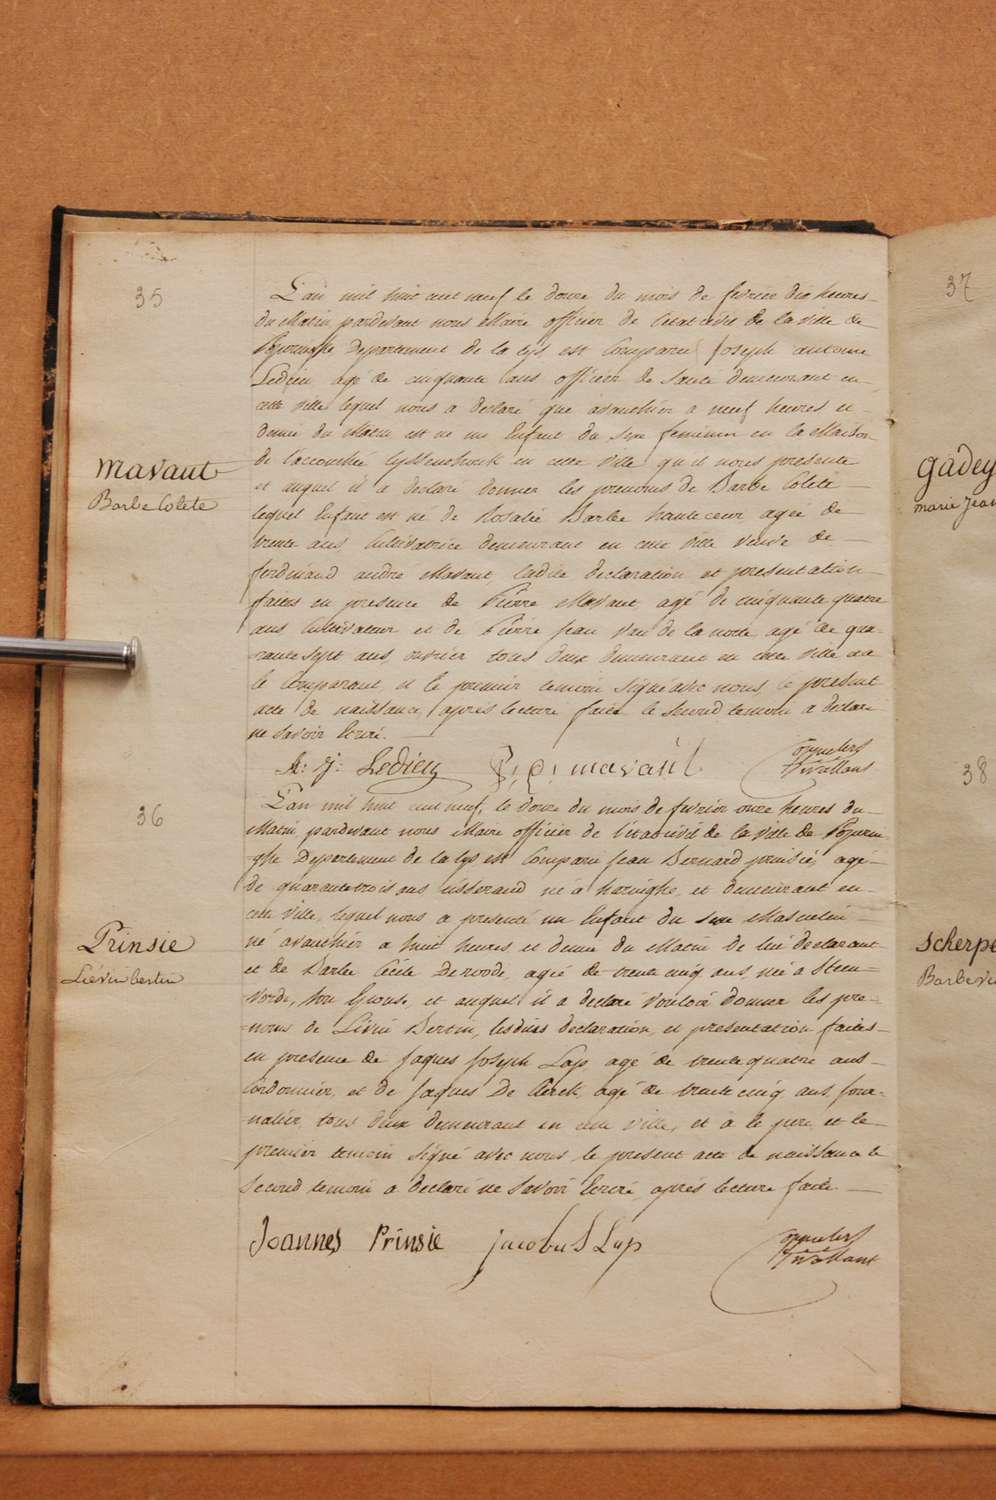 35
L'an mil huit cent neuf le douze du mois de fevrier dix heures
du Matin pardevant nous Maire officier de l'etat civil de la ville de
Poperinghe Departement de la Lys, est Comparu Joseph antoine
Ledieu agé de cinquante ans officier de Santé demeurant en
cette ville lequel nous a declaré que avanthier a neuf heures et
demie du Matin est né un Enfant du sexe feminin en la Maison
de l'accouchée en cette ville qu'il nous presente
et auquel il a declaré donner les prenoms de Barbe Colete
lequel Enfant est né de Rosalie Barbe hautecœur agee de
trente ans, Cultivatrice demeurant en cette ville veuve de
ferdinand andré Mavaut, ladite declaration et presentation
faites en presence de Pierre Mavaut, agé de cinquante quatre
ans Cultivateur et de Pierre Jean Van de la notte agé de qua-
rante sept ans, ouvrier tous deux demeurant en cette ville et a
le Comparant, et le premier temoin signé avec nous, le present
acte de naissance, après lecture faite le second temoin a declaré
ne savoir Ecrire.
mavaut
Barbe Colete
A: J: Ledieu P: mavaut
36
L'an mil huit cent neuf, le douze du mois de fevrier onze heures du
Matin, pardevant nous Maire officier de l'état civil de la ville de Poperin-
-ghe Departement de la Lys est Comparu Jean Bernard prinsie, agé
de quarante trois ans tisserand né à haringhe, et demeurant en
cette ville, lequel nous a presenté un Enfant du sexe Masculin
né avanthier a huit heures et demie du Matin de lui declarant
et de Barbe Cécile Deroode, agée de trente cinq ans, née a Steen-
vorde, son Epouse, et auquel il a declaré vouloir donner les pre-
-noms de Liévin Bertin, lesdites declaration, et presentation faites
en presence de Jaques Joseph Lap agé de trente quatre ans
Cordonnier, et de Jaques De Clerck, agé de trente cinq ans, jour-
nalier, tous deux demeurant en cette ville, et à le pere et le
premier temoin signé avec nous le present acte de naissance le
second temoin a declaré ne savoir Ecrire, après lecture faite.
Prinsie
Liévin bertin
Joannes Prinsie jacobus Lap
37
gadey
marie Jean
38
Scherpe
Barbe